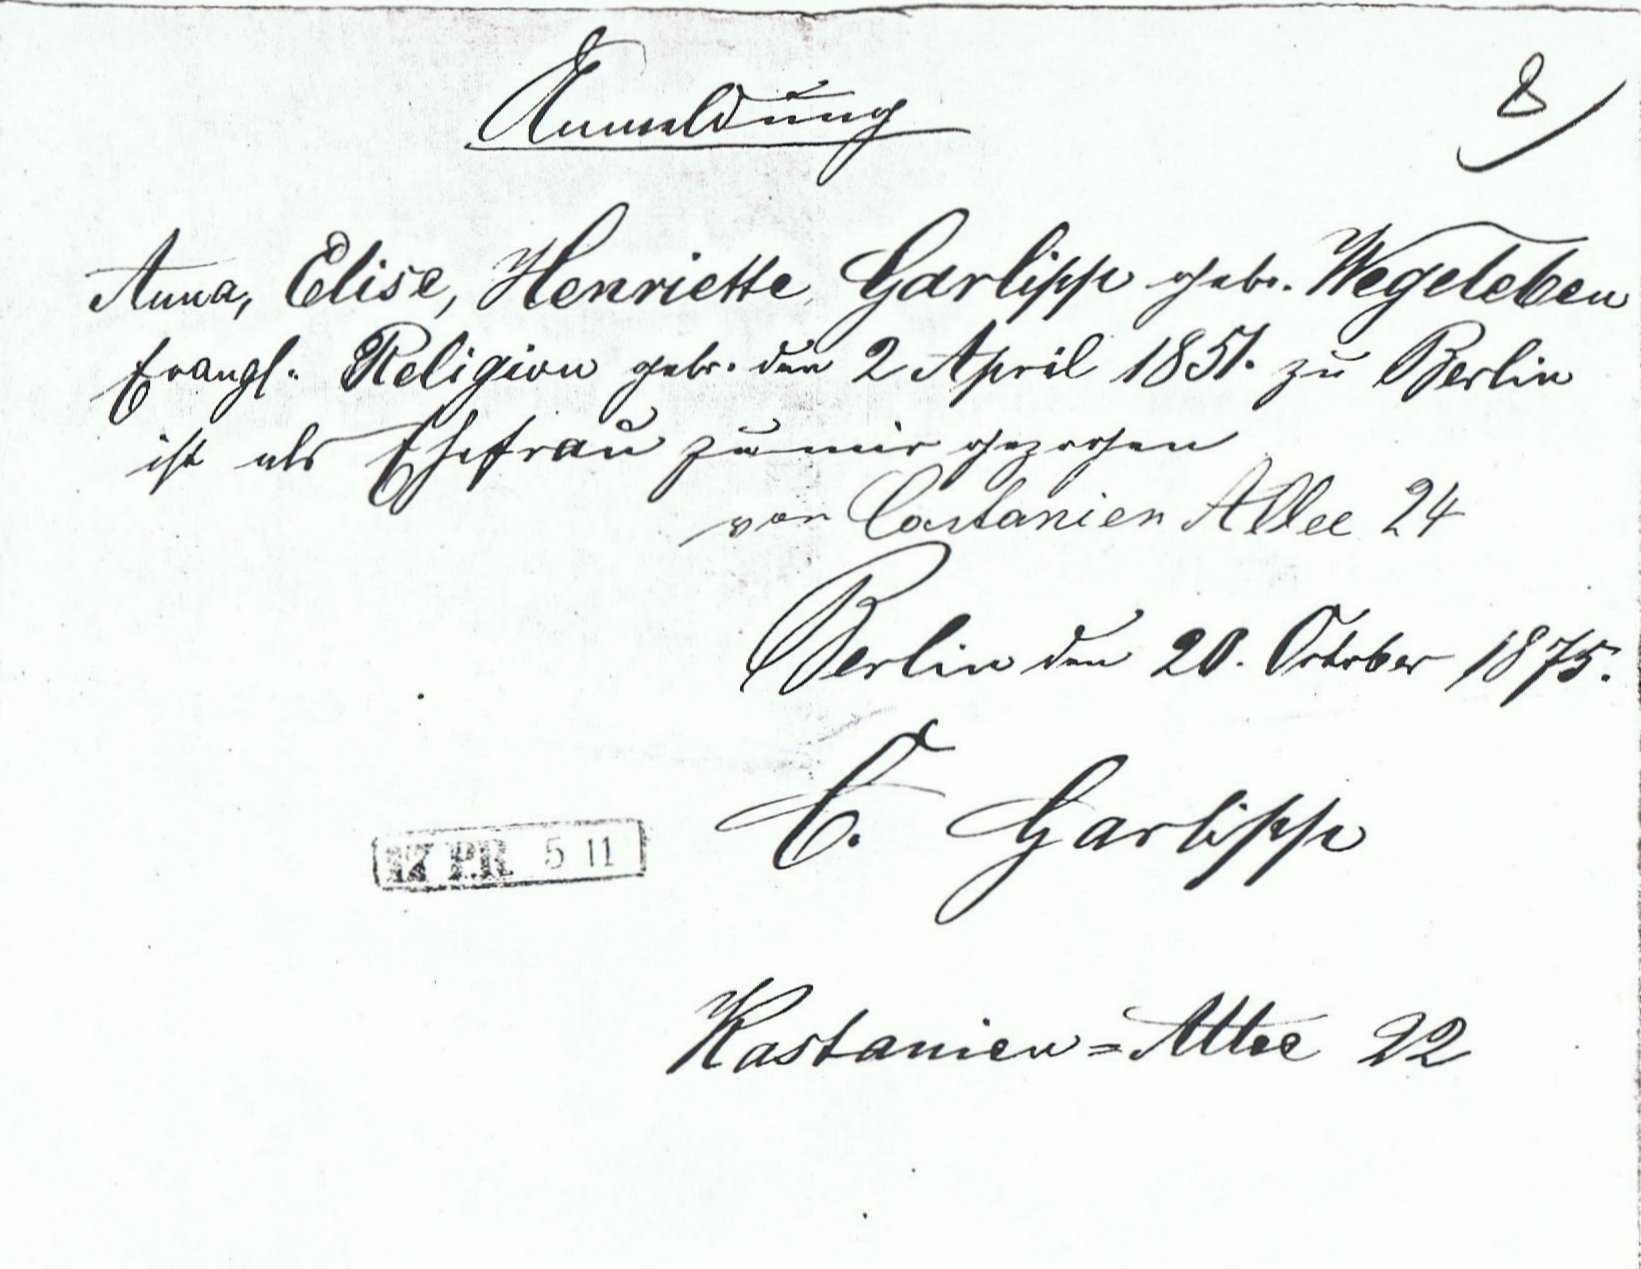 Anmeldung
8
Anna, Elise, Henriette Garlipp gebr. Wegeleben
Evangl. Religion gebr. den 2 April 1851. zu Berlin
ist als Ehefrau zu mir gezogen
von Castanien Allee 24
Berlin den 20. October 1875.
E. Garlipp
17 P.R 5 11
Kastanien=Allee 22